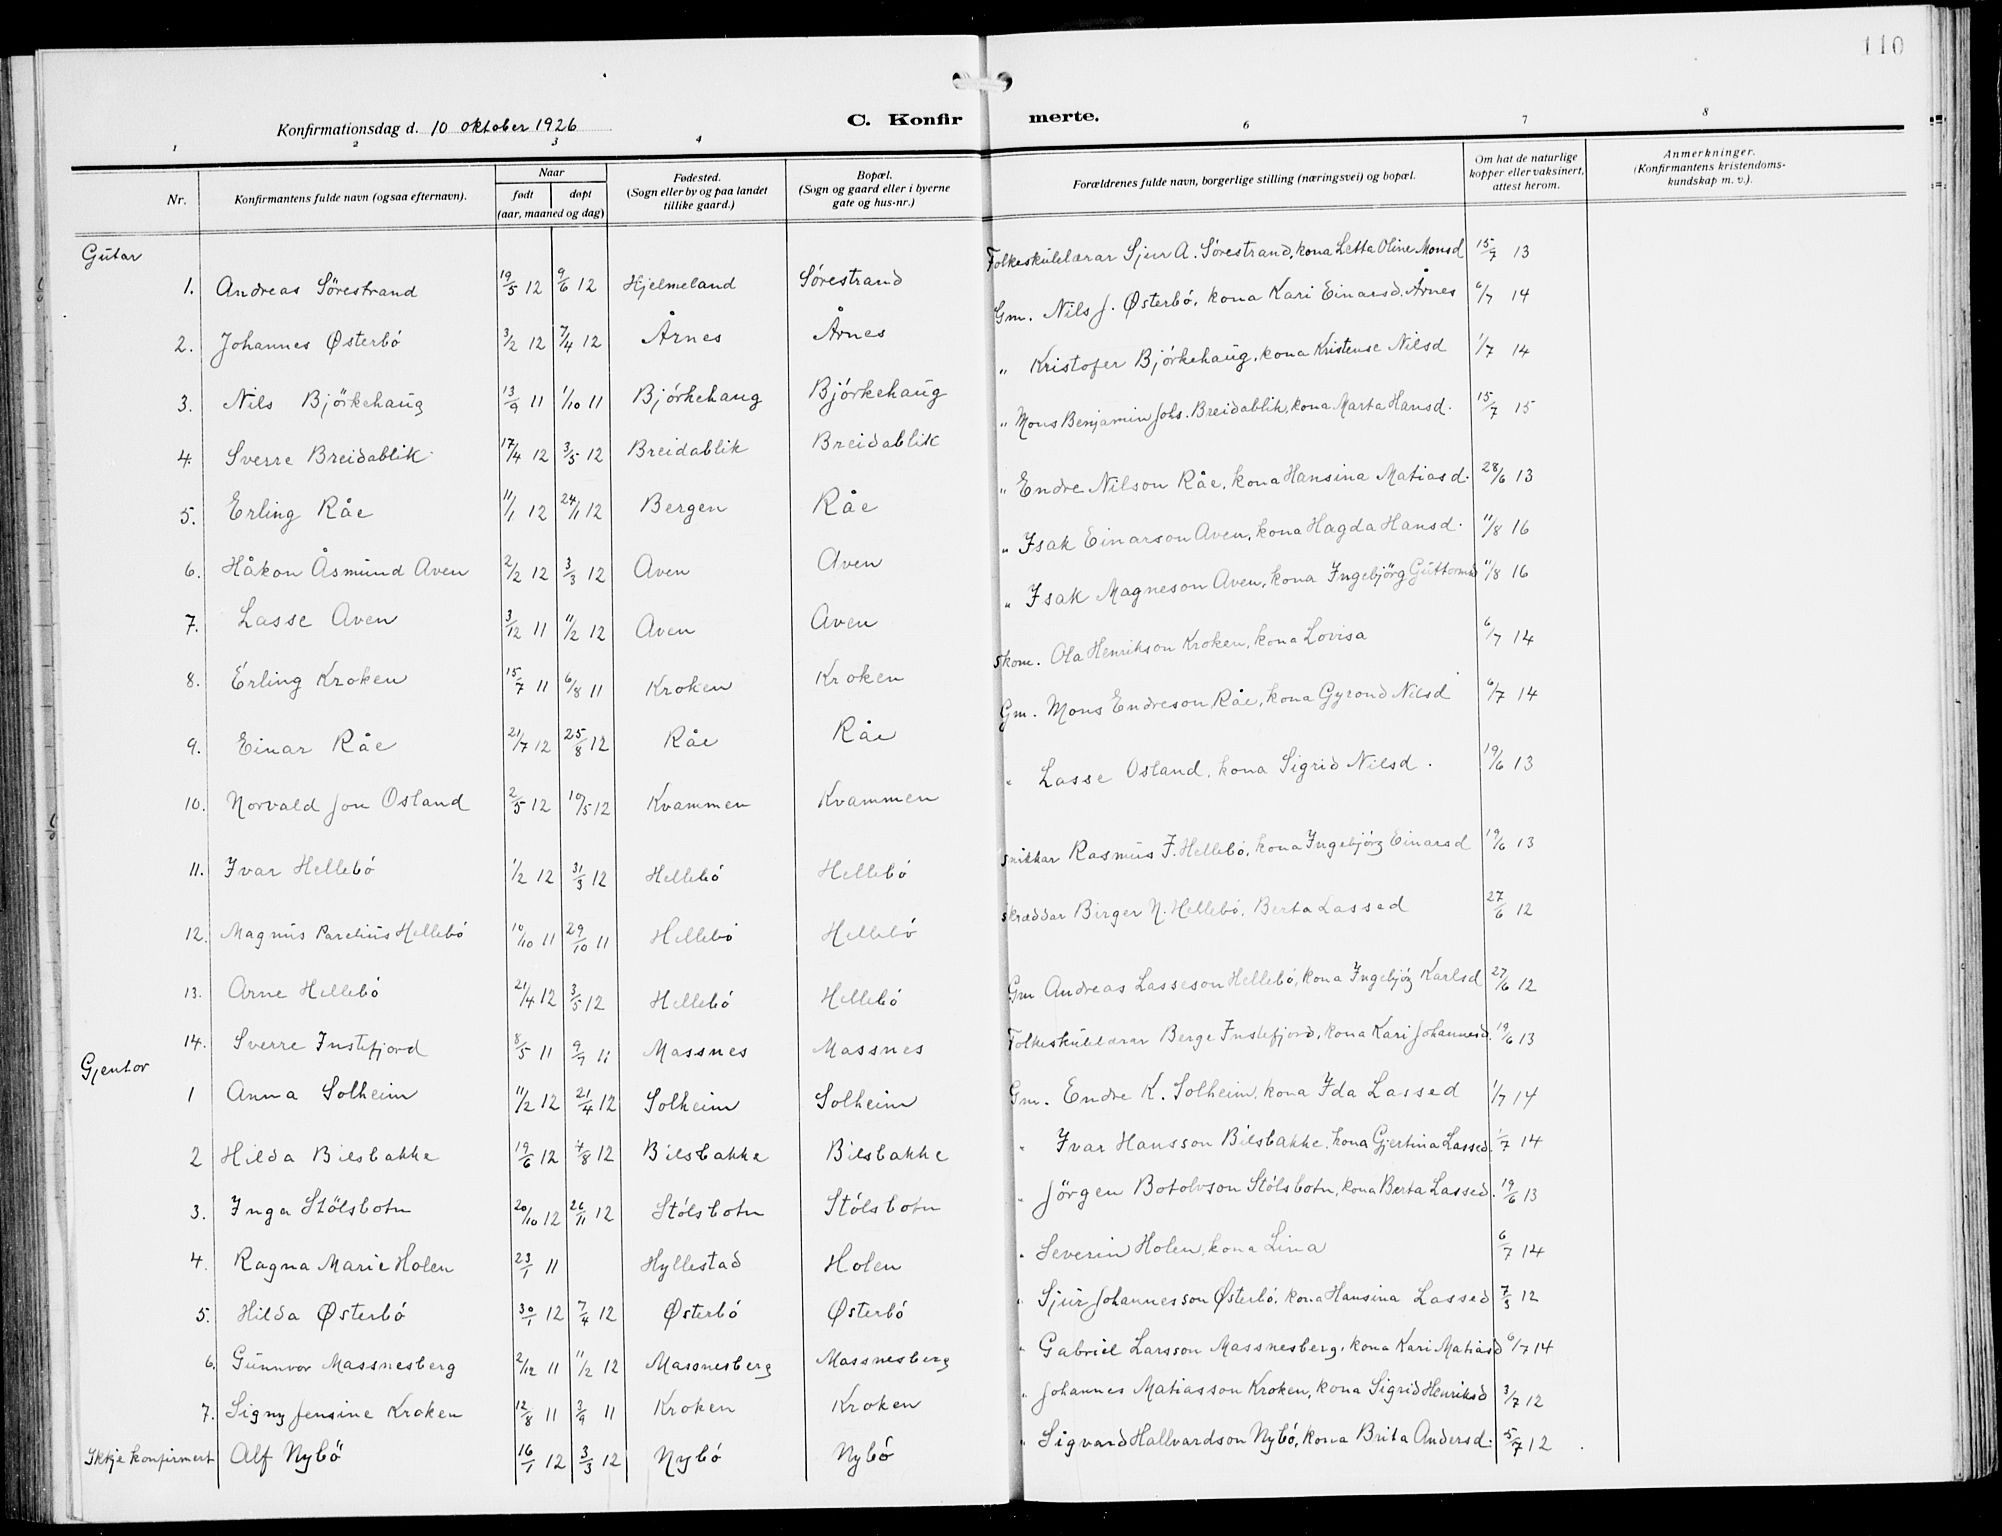 110
Konfirmationsdag d. 10 oktober 1926
C. Konfirmerte.
1 2 3 4 6 7 8
Nr.
Konfirmantens fulde navn (ogsaa efternavn).
Naar
født døpt
(aar, maaned og dag)
Fødested.
(Sogn eller by og paa landet
tillike gaard.)
Bopæl.
(Sogn og gaard eller i byerne
gate og hus-nr.)
Forældrenes fulde navn, borgerlige stilling (næringsvei) og bopæl.
Om hat de naturlige
kopper eller vaksinert,
attest herom.
Anmerkninger.
(Konfirmantens kristendoms-
kundskap m. v.).
Gutar
1. Andreas Sörestrand 19/5 12 9/6 12 Hjelmeland Sörestrand Folkeskulelærar Sjur A. Sörestrand, kona Letta Oline Monsd 15/7 13
2. Johannes Østerbö 3/2 12 7/4 12 Årnes Årnes Gm. Nils J. Østerbö, kona Kari Einarsd. Årnes 6/7 14
3. Nils Björkehaug 13/9 11 1/10 11 Björkehaug Björkehaug " Kristofer Björkehaug, kona Kristense Nilsd 1/7 14
4. Sverre Breidablik 17/4 12 3/5 12 Breidablik Breidablik " Mons Benjamin Johs. Breidablik, kona Marta Hansd. 15/7 15
5. Erling Råe 11/1 12 24/1 12 Bergen Råe " Endre Nilson Råe, kona Hansina Matiasd. 28/6 13
6. Håkon Åsmund Aven 2/2 12 3/3 12 Aven Aven " Isak Einarson Aven, kona Hagda Hansd. 11/8 16
7. Lasse Aven 3/12 11 11/2 12 Aven Aven " Isak Magneson Aven, kona Ingebjörg Guttormsd 11/8 16
8. Erling Kroken 15/7 11 6/8 11 Kroken Kroken Skom. Ola Henrikson Kroken, kona Lovisa 6/7 14
9. Einar Råe 21/7 12 25/8 12 Råe Råe Gm. Mons Endreson Råe, kona Gyrond Nilsd 6/7 14
10. Norvald Jon Osland 2/5 12 10/5 12 Kvammen Kvammen " Lasse Osland, kona Sigrid Nilsd. 19/6 13
11. Ivar Hellebö 1/2 12 31/3 12 Hellebö Hellebö Snikkar Rasmus I. Hellebö, kona Ingebjörg Einarsd 19/6 13
12. Magnus Parelius Hellebö 10/10 11 29/10 11 Hellebö Hellebö Skræddar Birger N. Hellebö, Berta Lassed 27/6 12
13. Arne Hellebö 21/4 12 3/5 12 Hellebö Hellebö Gm Andreas Lasseson Hellebö, kona Ingebjög Karlsd 27/6 12
14. Sverre Instefjord 8/5 11 9/7 11 Massnes Massnes Folkeskulelærar Berge Instefjord, kona Kari Johannesd. 19/6 13
Gjentor
1 Anna Solheim 11/2 12 21/4 12 Solheim Solheim Gm. Endre K. Solheim, kona Ida Lassed 1/7 14
2 Hilda Bilsbakke 19/6 12 4/8 12 Bilsbakke Bilsbakke " Ivar Hansson Bilsbakke, kona Gjertina Lassed. 1/7 14
3. Inga Stölsbotn 20/10 12 26/11 12 Stölsbotn Stölsbotn " Jörgen Botolvson Stölsbotn, kona Berta Lassed. 19/6 13
4. Ragna Marie Holen 23/1 11 Hyllestad Holen " Severin Holen, kona Lina 6/7 14
5. Hilda Østerbö 30/1 12 7/4 12 Østerbö Østerbö " Sjur Johannesson Østerbö, kona Hansina Lassed 7/3 12
6. Gunnvor Massnesberg 2/12 11 11/2 12 Massnesberg Massnesberg " Gabriel Larsson Massnesberg, kona Kari Matiasd 6/7 14
7. Signy Jensine Kroken 12/8 11 3/9 11 Kroken Kroken " Johannes Matiasson Kroken, kona Sigrid Henriksd 3/7 12
Ikkje konfirmert Alf Nybö 16/1 12 3/3 12 Nybö Nybö " Sigvard Hallvardson Nybö, kona Brita Andersd. 5/7 12